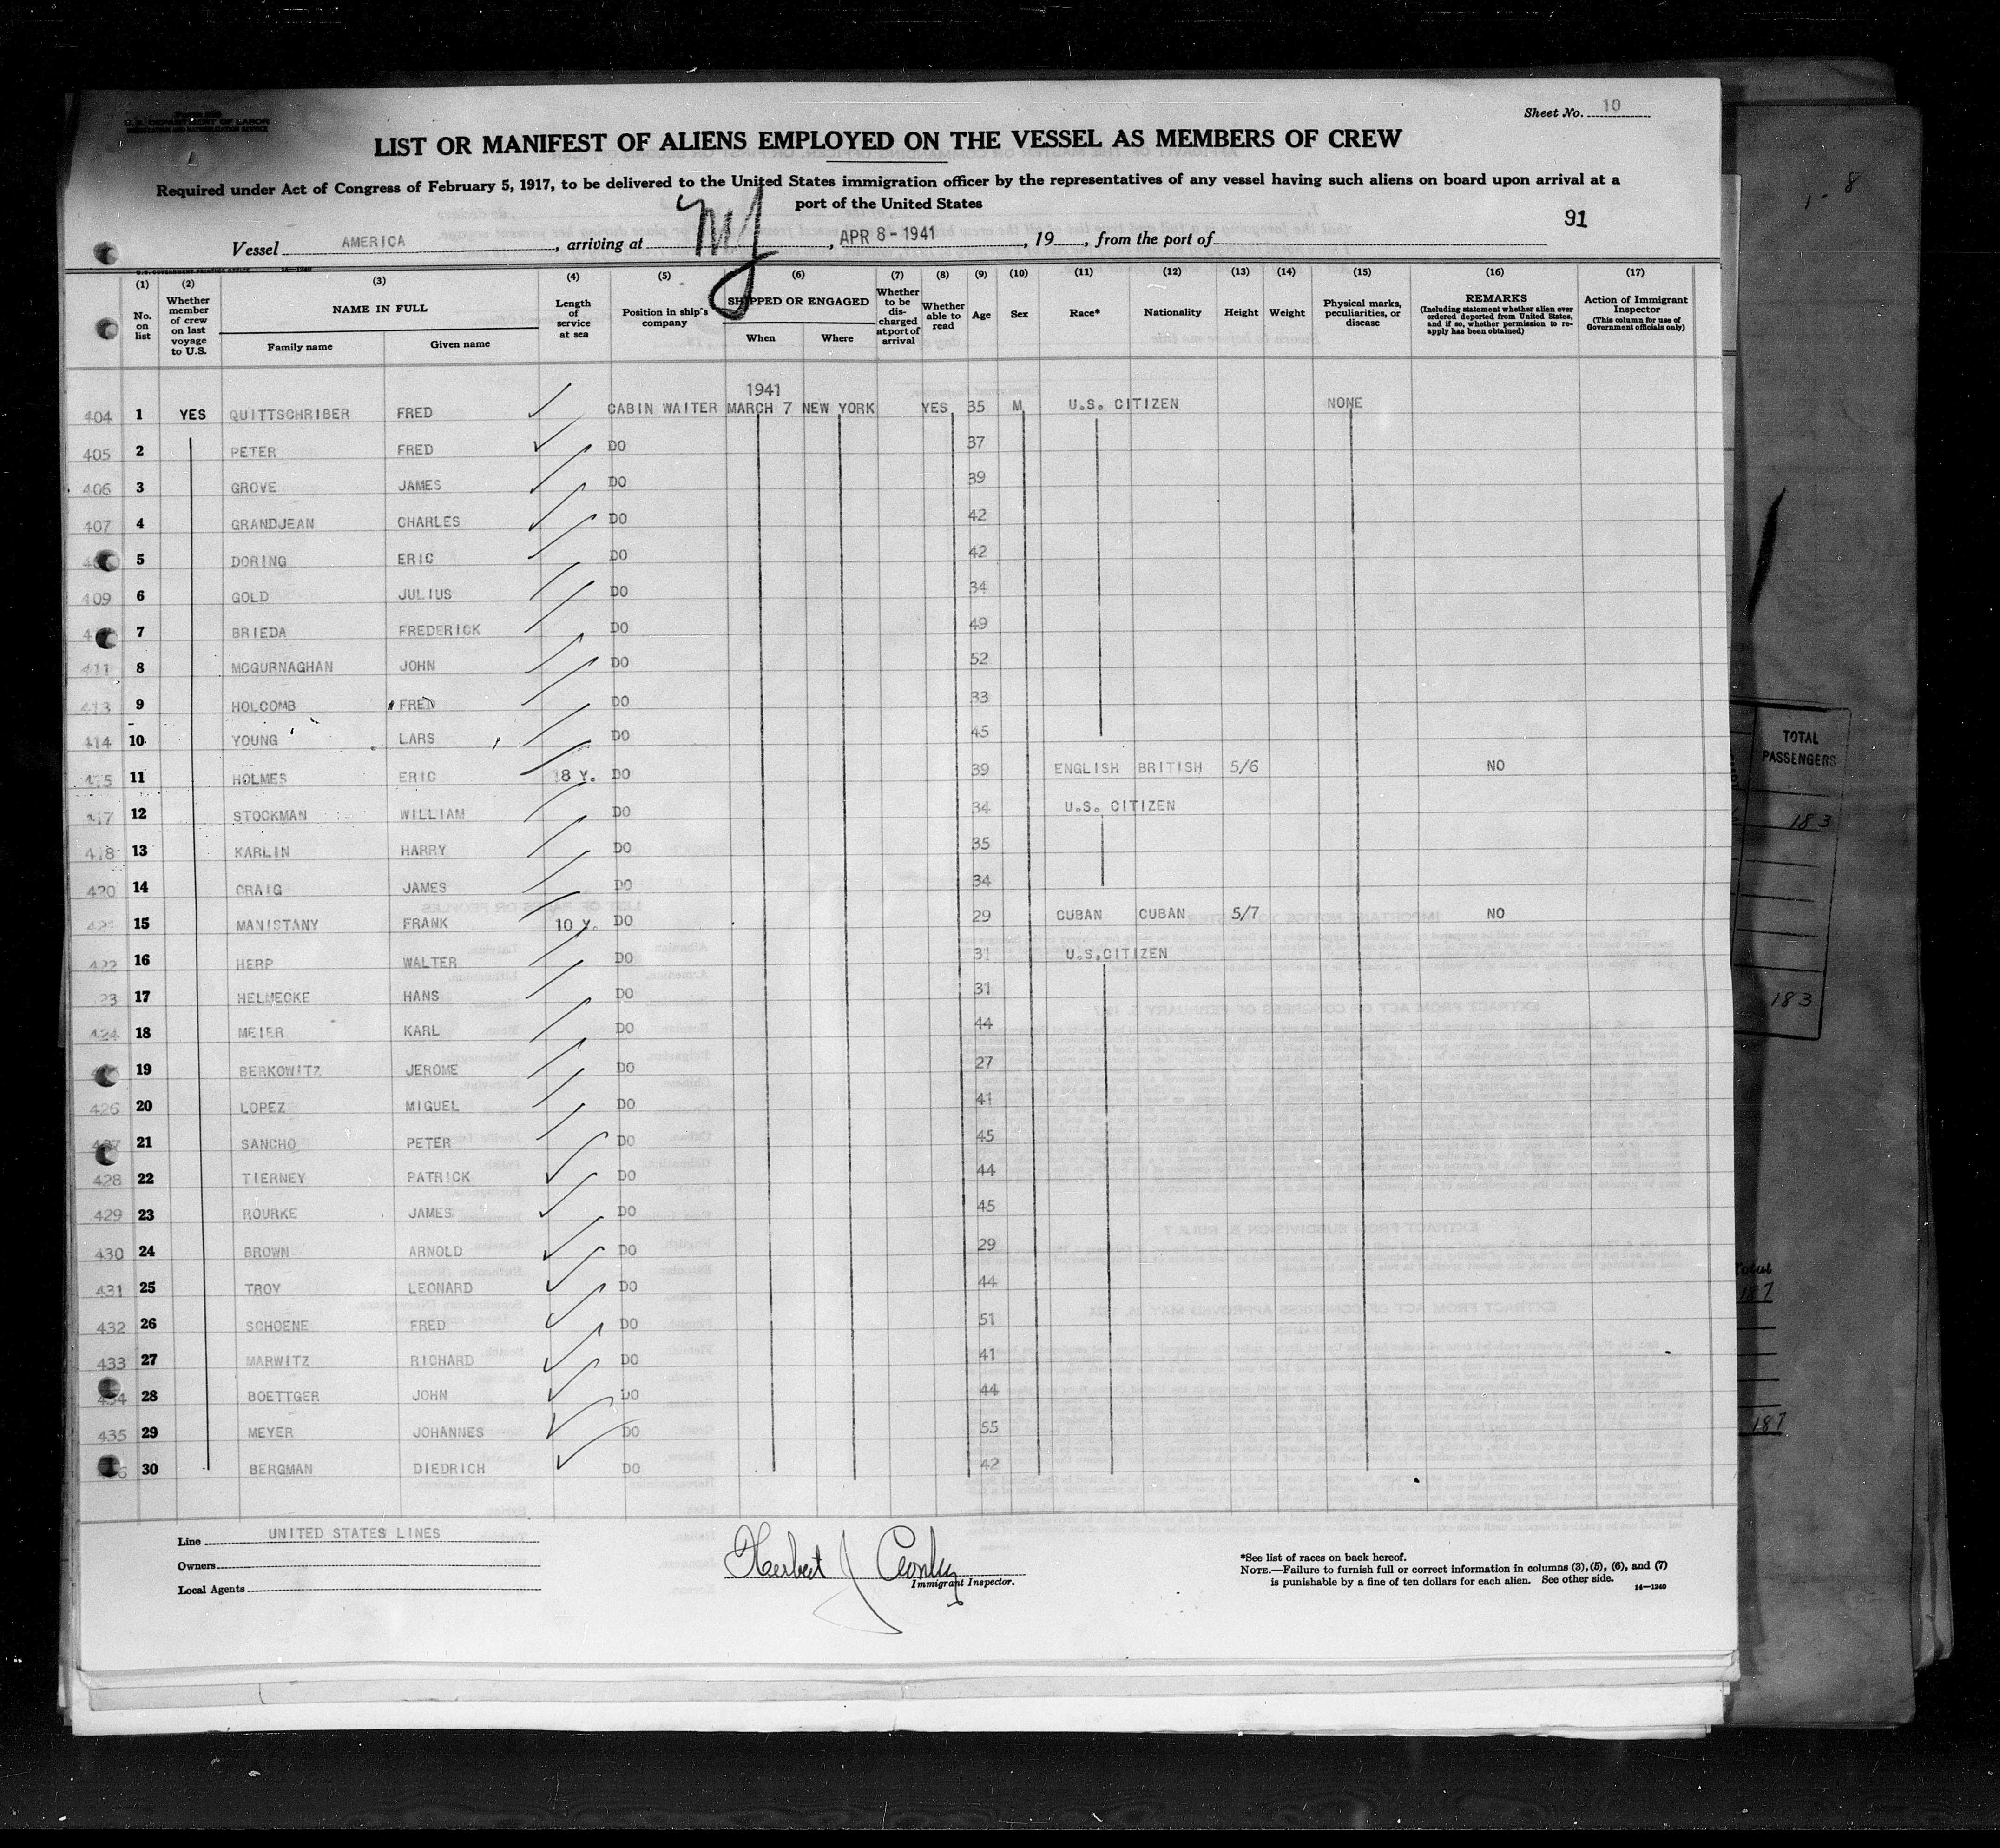 Sheet No. 10
U.S. DEPARTMENT OF LABOR
IMMIGRATION AND NATURALIZATION SERVICE
LIST OR MANIFEST OF ALIENS EMPLOYED ON THE VESSEL AS MEMBERS OF CREW
Required under Act of Congress of February 5, 1917, to be delivered to the United States immigration officer by the representatives of any vessel having such aliens on board upon arrival at a
port of the United States
91
Vessel AMERICA, arriving at NY, APR 8-1941, 19, from the port of
(1) (2) (3) (4) (5) (6) (7) (8) (9) (10) (11) (12) (13) (14) (15) (16) (17)
No. on list
Whether member of crew on last voyage to U.S.
NAME IN FULL
Family name
Given name
Length of service at sea
Position in ship's company
SHIPPED OR ENGAGED
When
Where
Whether to be discharged at port of arrival
Whether able to read
Age
Sex
Race*
Nationality
Height
Weight
Physical marks, peculiarities, or disease
REMARKS
(Including statement whether alien ever ordered deported from United States, and if so, whether permission to reapply has been obtained)
Action of Immigrant Inspector
(This column for use of Government officials only)
1941
404 1 YES QUITTSCHRIBER FRED CABIN WAITER MARCH 7 NEW YORK YES 35 M U.S. CITIZEN NONE
405 2 PETER FRED DO 37
406 3 GROVE JAMES DO 39
407 4 GRANDJEAN CHARLES DO 42
5 DORING ERIC DO 42
409 6 GOLD JULIUS DO 34
7 BRIEDA FREDERICK DO 49
411 8 MCGURNAGHAN JOHN DO 52
413 9 HOLCOMB FRED DO 33
414 10 YOUNG LARS DO 45
415 11 HOLMES ERIC 18 Y. DO 39 ENGLISH BRITISH 5/6 NO
417 12 STOCKMAN WILLIAM DO 34 U.S. CITIZEN
418 13 KARLIN HARRY DO 35
420 14 CRAIG JAMES DO 34
421 15 MANISTANY FRANK 10 Y. DO 29 CUBAN CUBAN 5/7 NO
422 16 HERP WALTER DO 31 U.S.CITIZEN
23 17 HELMECKE HANS DO 31
424 18 MEIER KARL DO 44
19 BERKOWITZ JEROME DO 27
426 20 LOPEZ MIGUEL DO 41
427 21 SANCHO PETER DO 45
428 22 TIERNEY PATRICK DO 44
429 23 ROURKE JAMES DO 45
430 24 BROWN ARNOLD DO 29
431 25 TROY LEONARD DO 44
432 26 SCHOENE FRED DO 51
433 27 MARWITZ RICHARD DO 41
434 28 BOETTGER JOHN DO 44
435 29 MEYER JOHANNES DO 55
30 BERGMAN DIEDRICH DO 42
Line UNITED STATES LINES
Owners
Local Agents
Immigrant Inspector.
*See list of races on back hereof.
NOTE.—Failure to furnish full or correct information in columns (3), (5), (6), and (7)
is punishable by a fine of ten dollars for each alien. See other side.
14—1240
TOTAL
PASSENGERS
183
183
Total
187
187